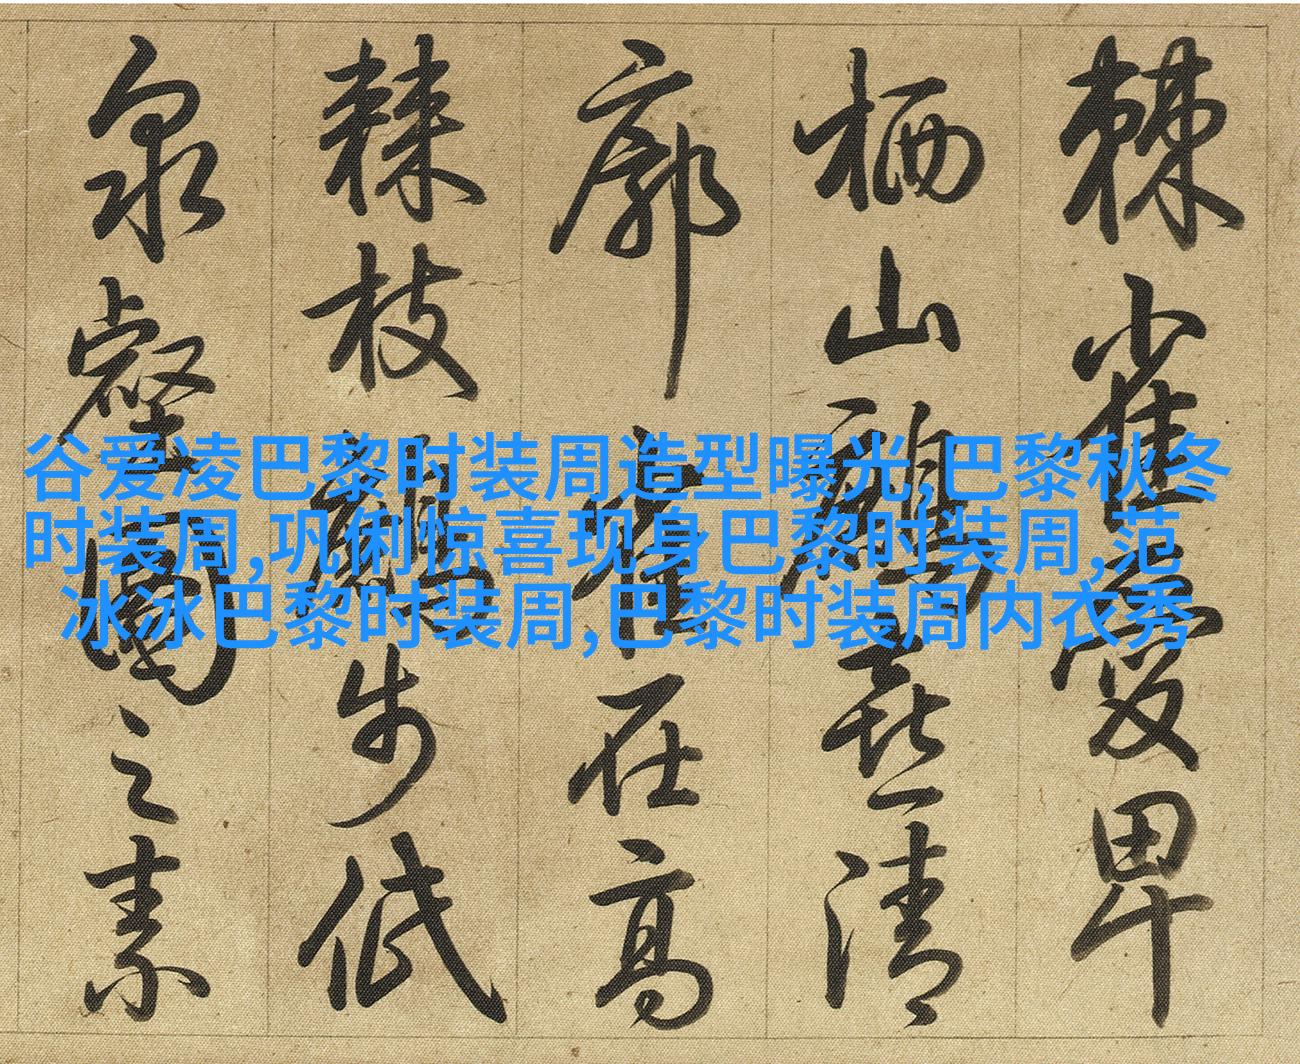 谷爱凌巴黎时装周造型曝光,巴黎秋冬
时装周,巩俐惊喜现身巴黎时装周,范
冰冰巴黎时装周,巴黎时装周内衣秀
棘雀愛卑
栖山喜清
廓在高
棘枝步低
泉壑之素